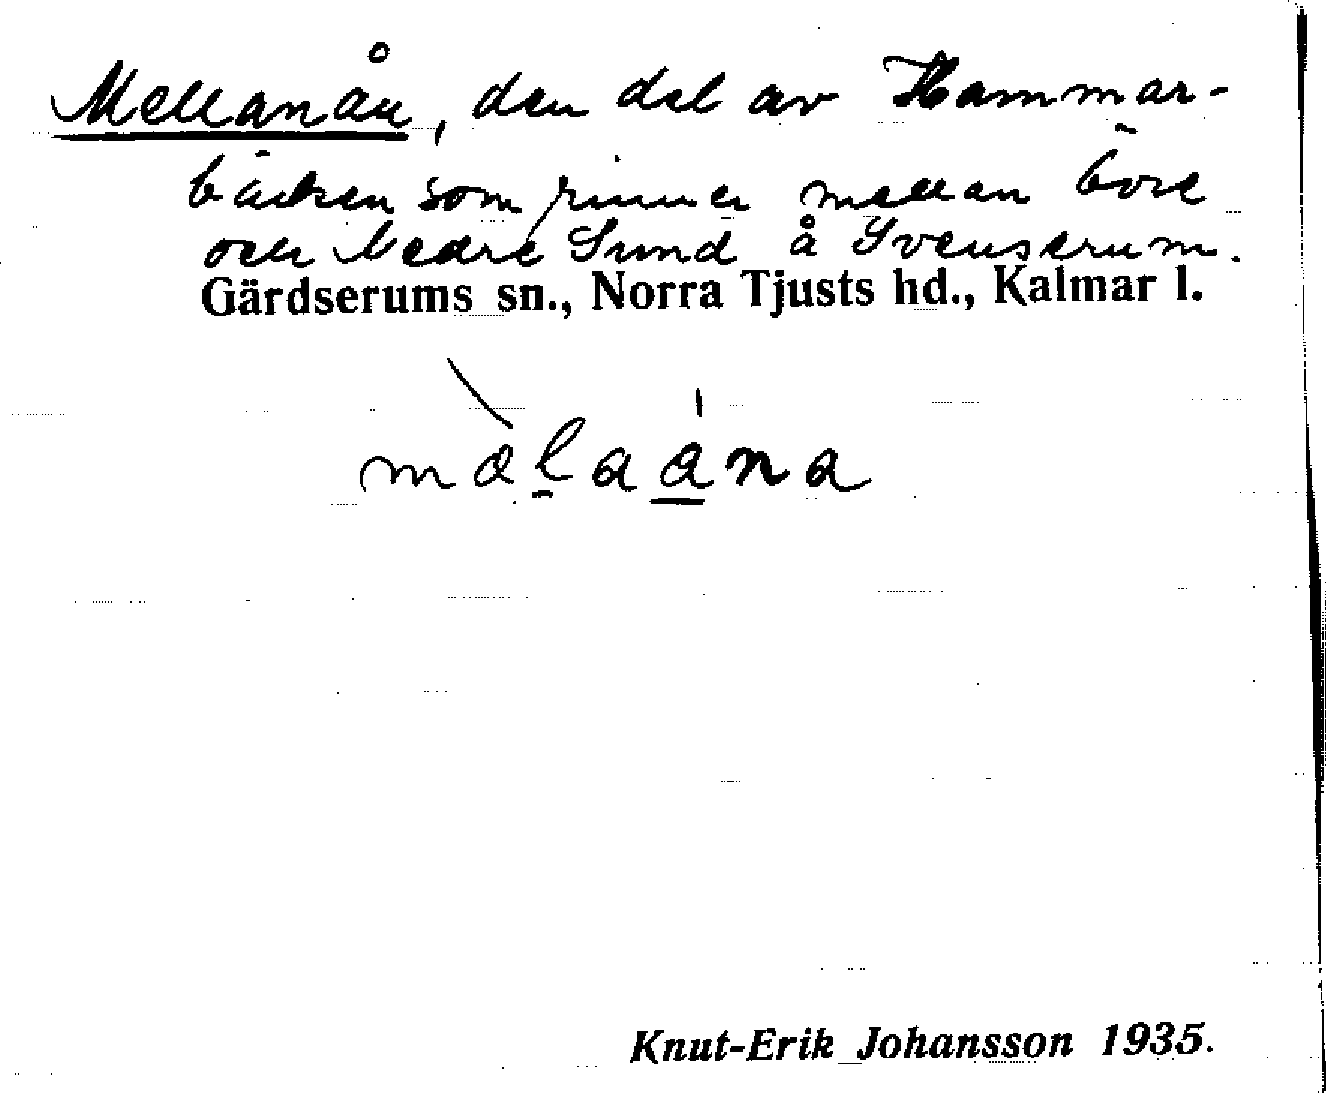 Mellanån, den del av Hammar-
bäcken som rinner mellan Övre
och Nedre Sund å Svenserum.
Gärdserums sn., Norra Tjusts hd., Kalmar l.
Knut-Erik Johansson 1935.